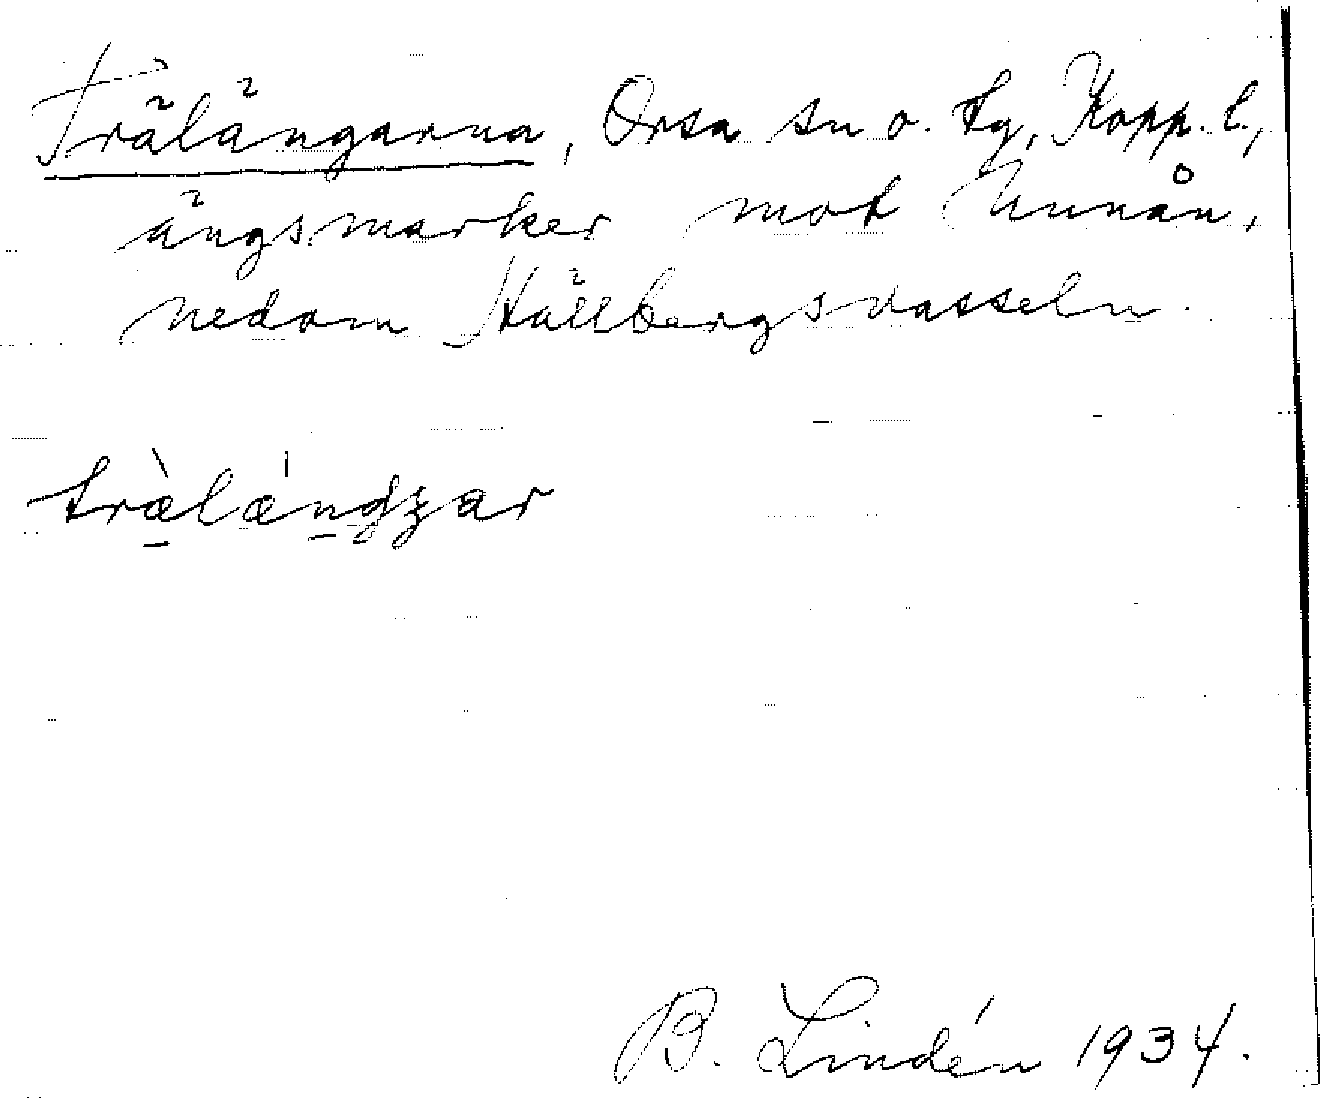 Trälängarna, Orsa sn o. tg, Kopp. l.,
ängsmarker mot Unnån,
nedom Hällbergsvasseln.
trælænʤar
B. Lindén 1934.